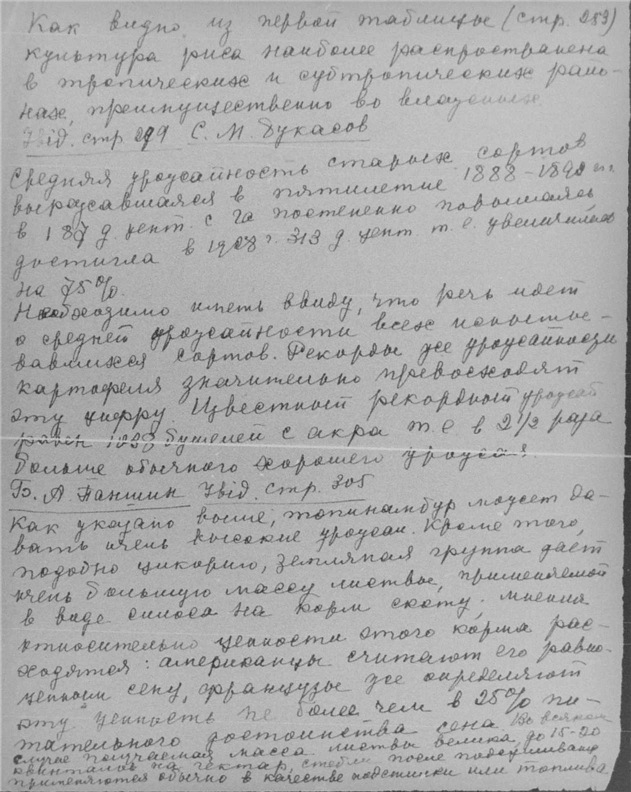 Как видно из первой таблицы (стр. 253)
культура риса наиболее распространена
в тропических и субтропических райо-
нах, преимущественно во влажных
Ibid. стр 299 С. М. Букасов
Средняя урожайность старых сортов
выражавшаяся в пятилетие 1888-1892 гг.
в 187 д. цент. с га постепенно повышаясь
достигла в 1908 г. 313 д. цент. т. е. увеличилась
на 75%.
Необходимо иметь ввиду, что речь идет
о средней урожайности всех испытые-
вавшихся сортов. Рекорды же урожайности
картофеля значительно превосходят
эту цифру. Известный рекордный урожай
равен 1038 бушелей с акра т. е в 2 1/2 раза
больше обычного хорошего урожая.
Б. А. Паншин Ibid. стр. 305
Как указано выше, топинамбур может да-
вать очень высокие урожаи. Кроме того,
подобно цикорию, земляная группа дает
очень большую массу листвы, применяемой
в виде силоса на корм скоту. Мнения
относительно ценности этого корма рас-
ходятся: американцы считают его равно-
ценным сену, французы же определяют
эту ценность не более чем в 25% пи-
тательного достоинства сена. Во всяком
случае получаемая масса листвы велика до 15-20
квинталов на гектар, стебли после подсушивания
применяются обычно в качестве подстилки или топлива